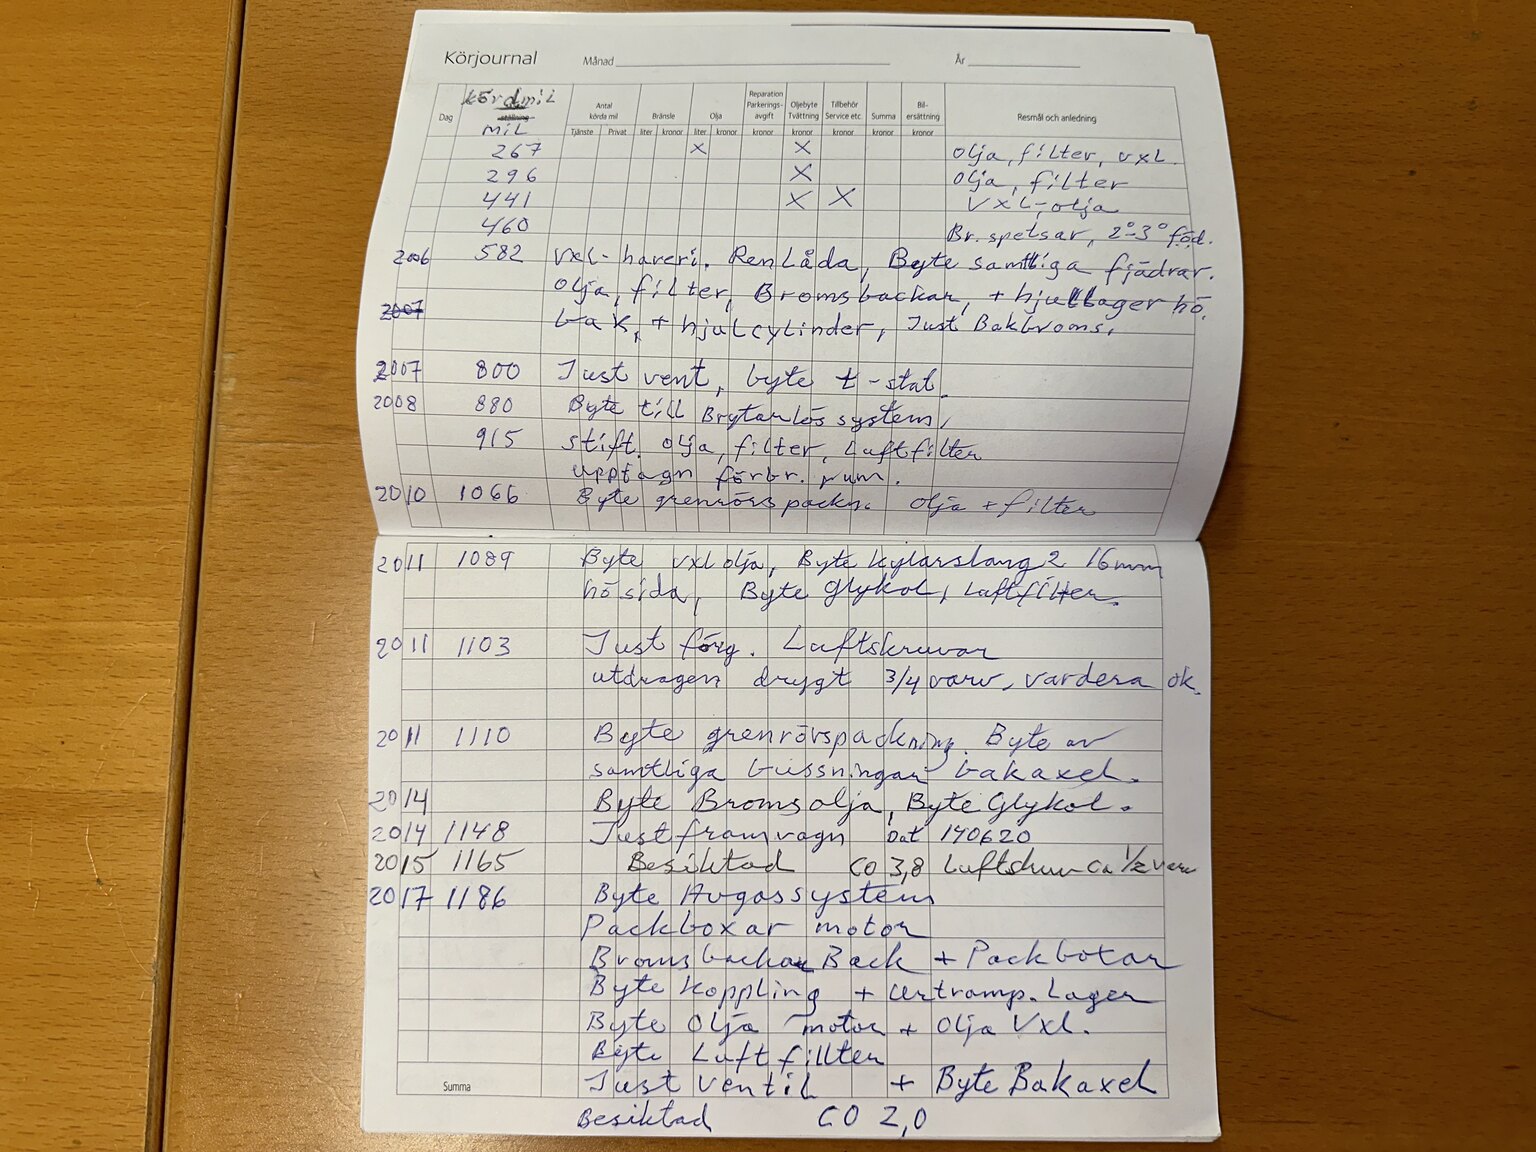 Körjournal Månad År
Dag körd mil ställning Antal körda mil Bränsle Olja Reparation Parkerings- avgift Oljebyte Tvättning Tillbehör Service etc. Summa Bil- ersättning Resmål och anledning
mil Tjänste Privat liter kronor liter kronor kronor kronor kronor kronor kronor
267 X X Olja, filter, vxl.
296 X Olja, filter
441 X X VXL-olja
460 Br. spetsar, 2°-3° föd.
2006 582 Vxl-haveri. Ren Låda, Byte samtliga fjädrar.
olja, filter, Bromsbackar, + hjullager hö.
2007 bak, + hjulcylinder, Just Bakbroms.
2007 800 Just vent, byte t-stat.
2008 880 Byte till Brytarlös system,
915 stift. olja, filter, Luftfilter
upptagn förbr. rum.
2010 1066 Byte grenrörspackn. olja + filter
2011 1089 Byte vxl olja, Byte kylarslang 2 16mm
hö sida, Byte Glykol, Luftfilter.
2011 1103 Just förg. Luftskruvar
utdragen drygt 3/4 varv, vardera ok.
2011 1110 Byte grenrörspackning. Byte av
samtliga bussningar bakaxel.
2014 Byte Bromsolja, Byte Glykol.
2014 1148 Just framvagn Dat 140620
2015 1165 Besiktad CO 3,8 Luftskruv ca 1/2 varv
2017 1186 Byte Avgassystem
Packboxar motor
Bromsbackar Back + Packbotar
Byte Koppling + Urtramp. Lager
Byte Olja motor + Olja Vxl.
Byte Luft fillter
Summa Just ventil + Byte Bakaxel
Besiktad CO 2,0